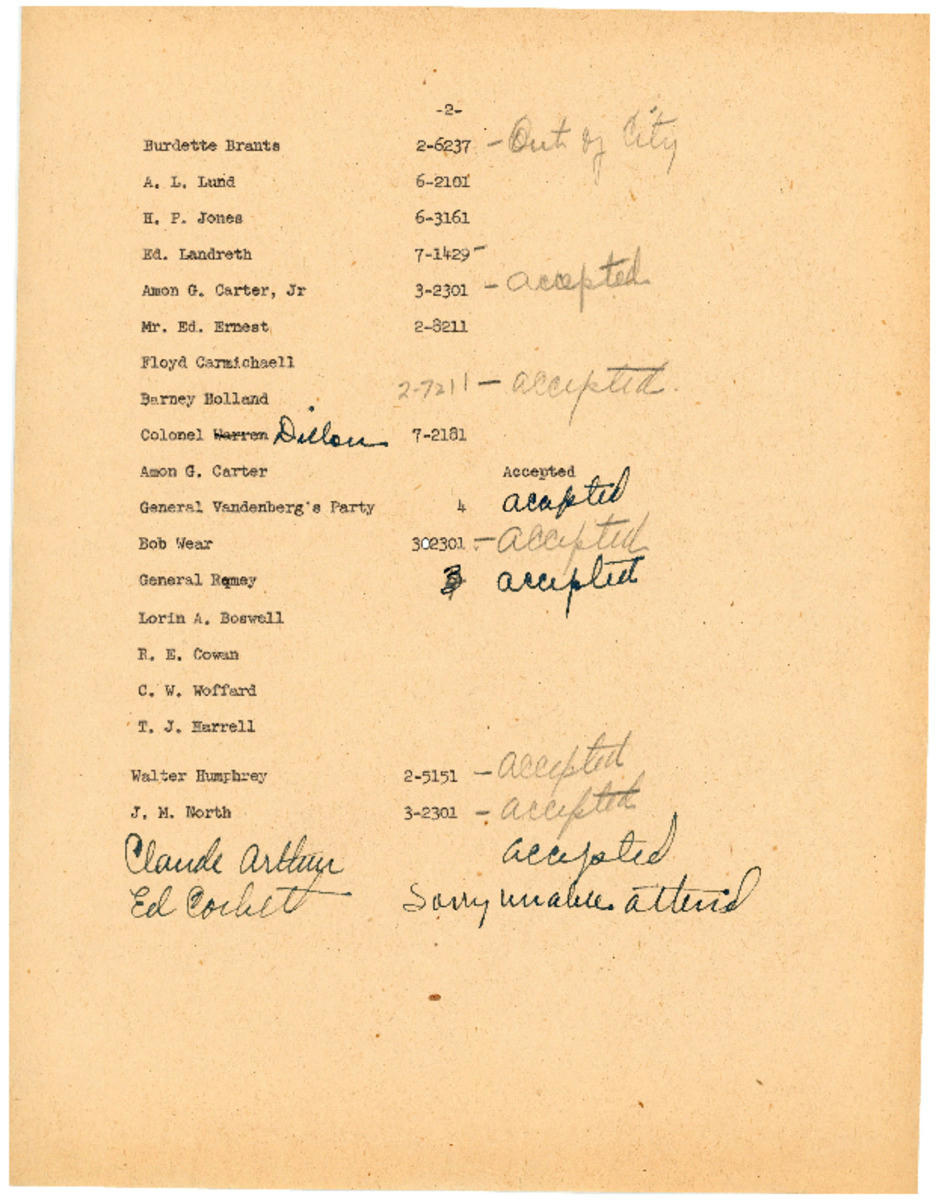 -2-
Burdette Brants 2-6237 - Out of City
A. L. Lund 6-2101
H. P. Jones 6-3161
Ed. Landreth 7-1429 -
Amon G. Carter, Jr 3-2301 - accepted
Mr. Ed. Ernest 2-8211
Floyd Carmichaell
Barney Holland 2-7211 - accepted.
Colonel Warren Dillon 7-2181
Amon G. Carter Accepted
General Vandenberg's Party 4 accepted
Bob Wear 302301 - Accepted
General Ramey 3 accepted
Lorin A. Boswell
R. E. Cowan
C. W. Woffard
T. J. Harrell
Walter Humphrey 2-5151 - accepted
J. M. North 3-2301 - accepted
Claude Arthur accepted
Ed Corbett Sorry unable attend